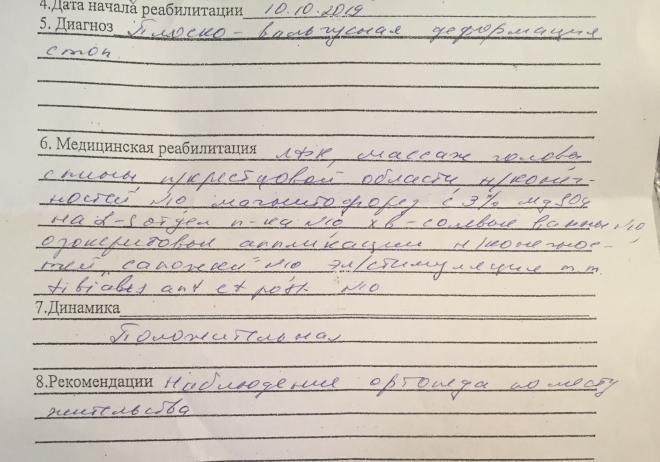 4.Дата начала реабилитации 10.10.2019
5. Диагноз Плоско-вальгусная деформация
стоп.
6. Медицинская реабилитация ЛФК, массаж головы
спины п/крестцовой области н/конеч-
ностей №10, магнитофорез с 3% MgSO4
на L-S отдел п-ка №10 хв-солевые ванны №10
озокеритовые аппликации н/конечнос-
тей "сапожки" №10 эл/стимуляция m.m.
tibiales ant et post. №10
7.Динамика
Положительная
8.Рекомендации Наблюдение ортопеда по месту
жительства